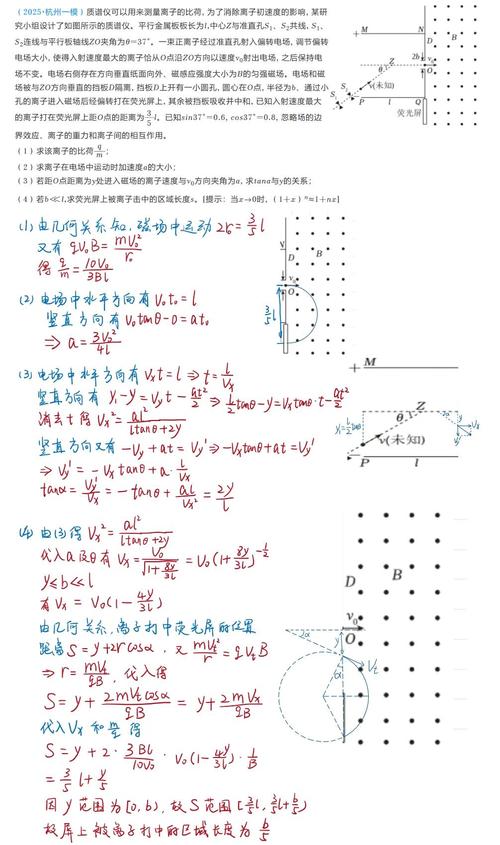 （2025•杭州一模）质谱仪可以用来测量离子的比荷，为了消除离子初速度的影响，某研
究小组设计了如图所示的质谱仪。平行金属板板长为l,中心Z与准直孔S₁、S₂共线，S₁、
S₂连线与平行板轴线ZO夹角为θ=37°。一束正离子经过准直孔射入偏转电场，调节偏转
电场大小，使得入射速度最大的离子恰从O点沿ZO方向以速度v₀射出电场，之后保持电
场不变。电场右侧存在方向垂直纸面向外、磁感应强度大小为B的匀强磁场。电场和磁
场被与ZO方向垂直的挡板D隔离，挡板D上开有一小圆孔，圆心在O点，半径为b。通过小
孔的离子进入磁场后经偏转打在荧光屏上，其余被挡板吸收并中和，已知入射速度最大
的离子打在荧光屏上距O点的距离为3/5 l。已知sin37°=0.6，cos37°=0.8，忽略场的边
界效应、离子的重力和离子间的相互作用。
（1）求该离子的比荷q/m；
（2）求离子在电场中运动时加速度a的大小；
（3）若距O点距离为y处进入磁场的离子速度与v₀方向夹角为α，求tanα与y的关系；
（4）若b≪l,求荧光屏上被离子击中的区域长度s。[提示：当x→0时，（1+x）ⁿ≈1+nx]
M N
D B
2b v₀
Z O
θ
v(未知)
S₂
S₁
P l Q
荧光屏
(1) 由几何关系知，磁场中运动 2r = 3/5 l
又有 qv₀B = mv₀²/r
得 q/m = 10v₀/3Bl
D B
v₀
O
3/5 l
(2) 电场中水平方向有 v₀t₀ = l
竖直方向有 v₀tanθ - 0 = at₀
⇒ a = 3v₀²/4l
(3) 电场中水平方向有 vₓt = l ⇒ t = l/vₓ
竖直方向有 y₁ - y = v_y t - at²/2 ⇒ l/2 tanθ - y = vₓtanθ·t - at²/2
消去t得 vₓ² = al²/(ltanθ+2y)
竖直方向又有 -v_y + at = v_y' ⇒ -vₓtanθ + at = v_y'
⇒ v_y' = -vₓtanθ + a·l/vₓ
tanα = v_y'/vₓ = -tanθ + al/vₓ² = 2y/l
M
Z
θ
v(未知)
P l
y₁ = l/2 tanθ
(4) 由(3)得 vₓ² = al²/(ltanθ+2y)
代入a及θ有 vₓ = v₀/√(1+8y/3l) = v₀(1+8y/3l)^(-1/2)
y≤b≪l
有 vₓ = v₀(1 - 4y/3l)
由几何关系，离子打中荧光屏的位置
距离 S = y+2rcosα，又 mv_t²/r = qv_tB
⇒ r = mv_t/qB，代入得
S = y + 2mv_tcosα/qB = y + 2mvₓ/qB
代入vₓ和q/m得
S = y + 2·3Bl/10v₀·v₀(1 - 4y/3l)·1/B
= 3/5 l + y/5
因y范围为[0,b)，故S范围[3/5 l, 3/5 l + b/5)
故屏上被离子打中的区域长度为 b/5
D B
v₀
O
2α
y
α
v_t